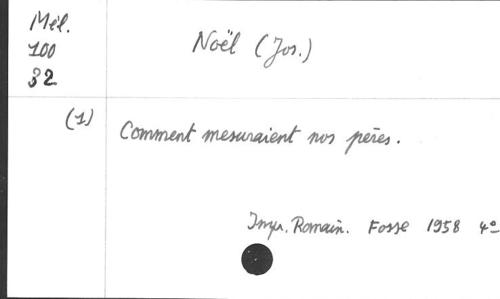 Mél.
100
32
Noël (Jos.)
(1)
Comment mesuraient nos pères.
Impr. Romain. Fosse 1958 4°